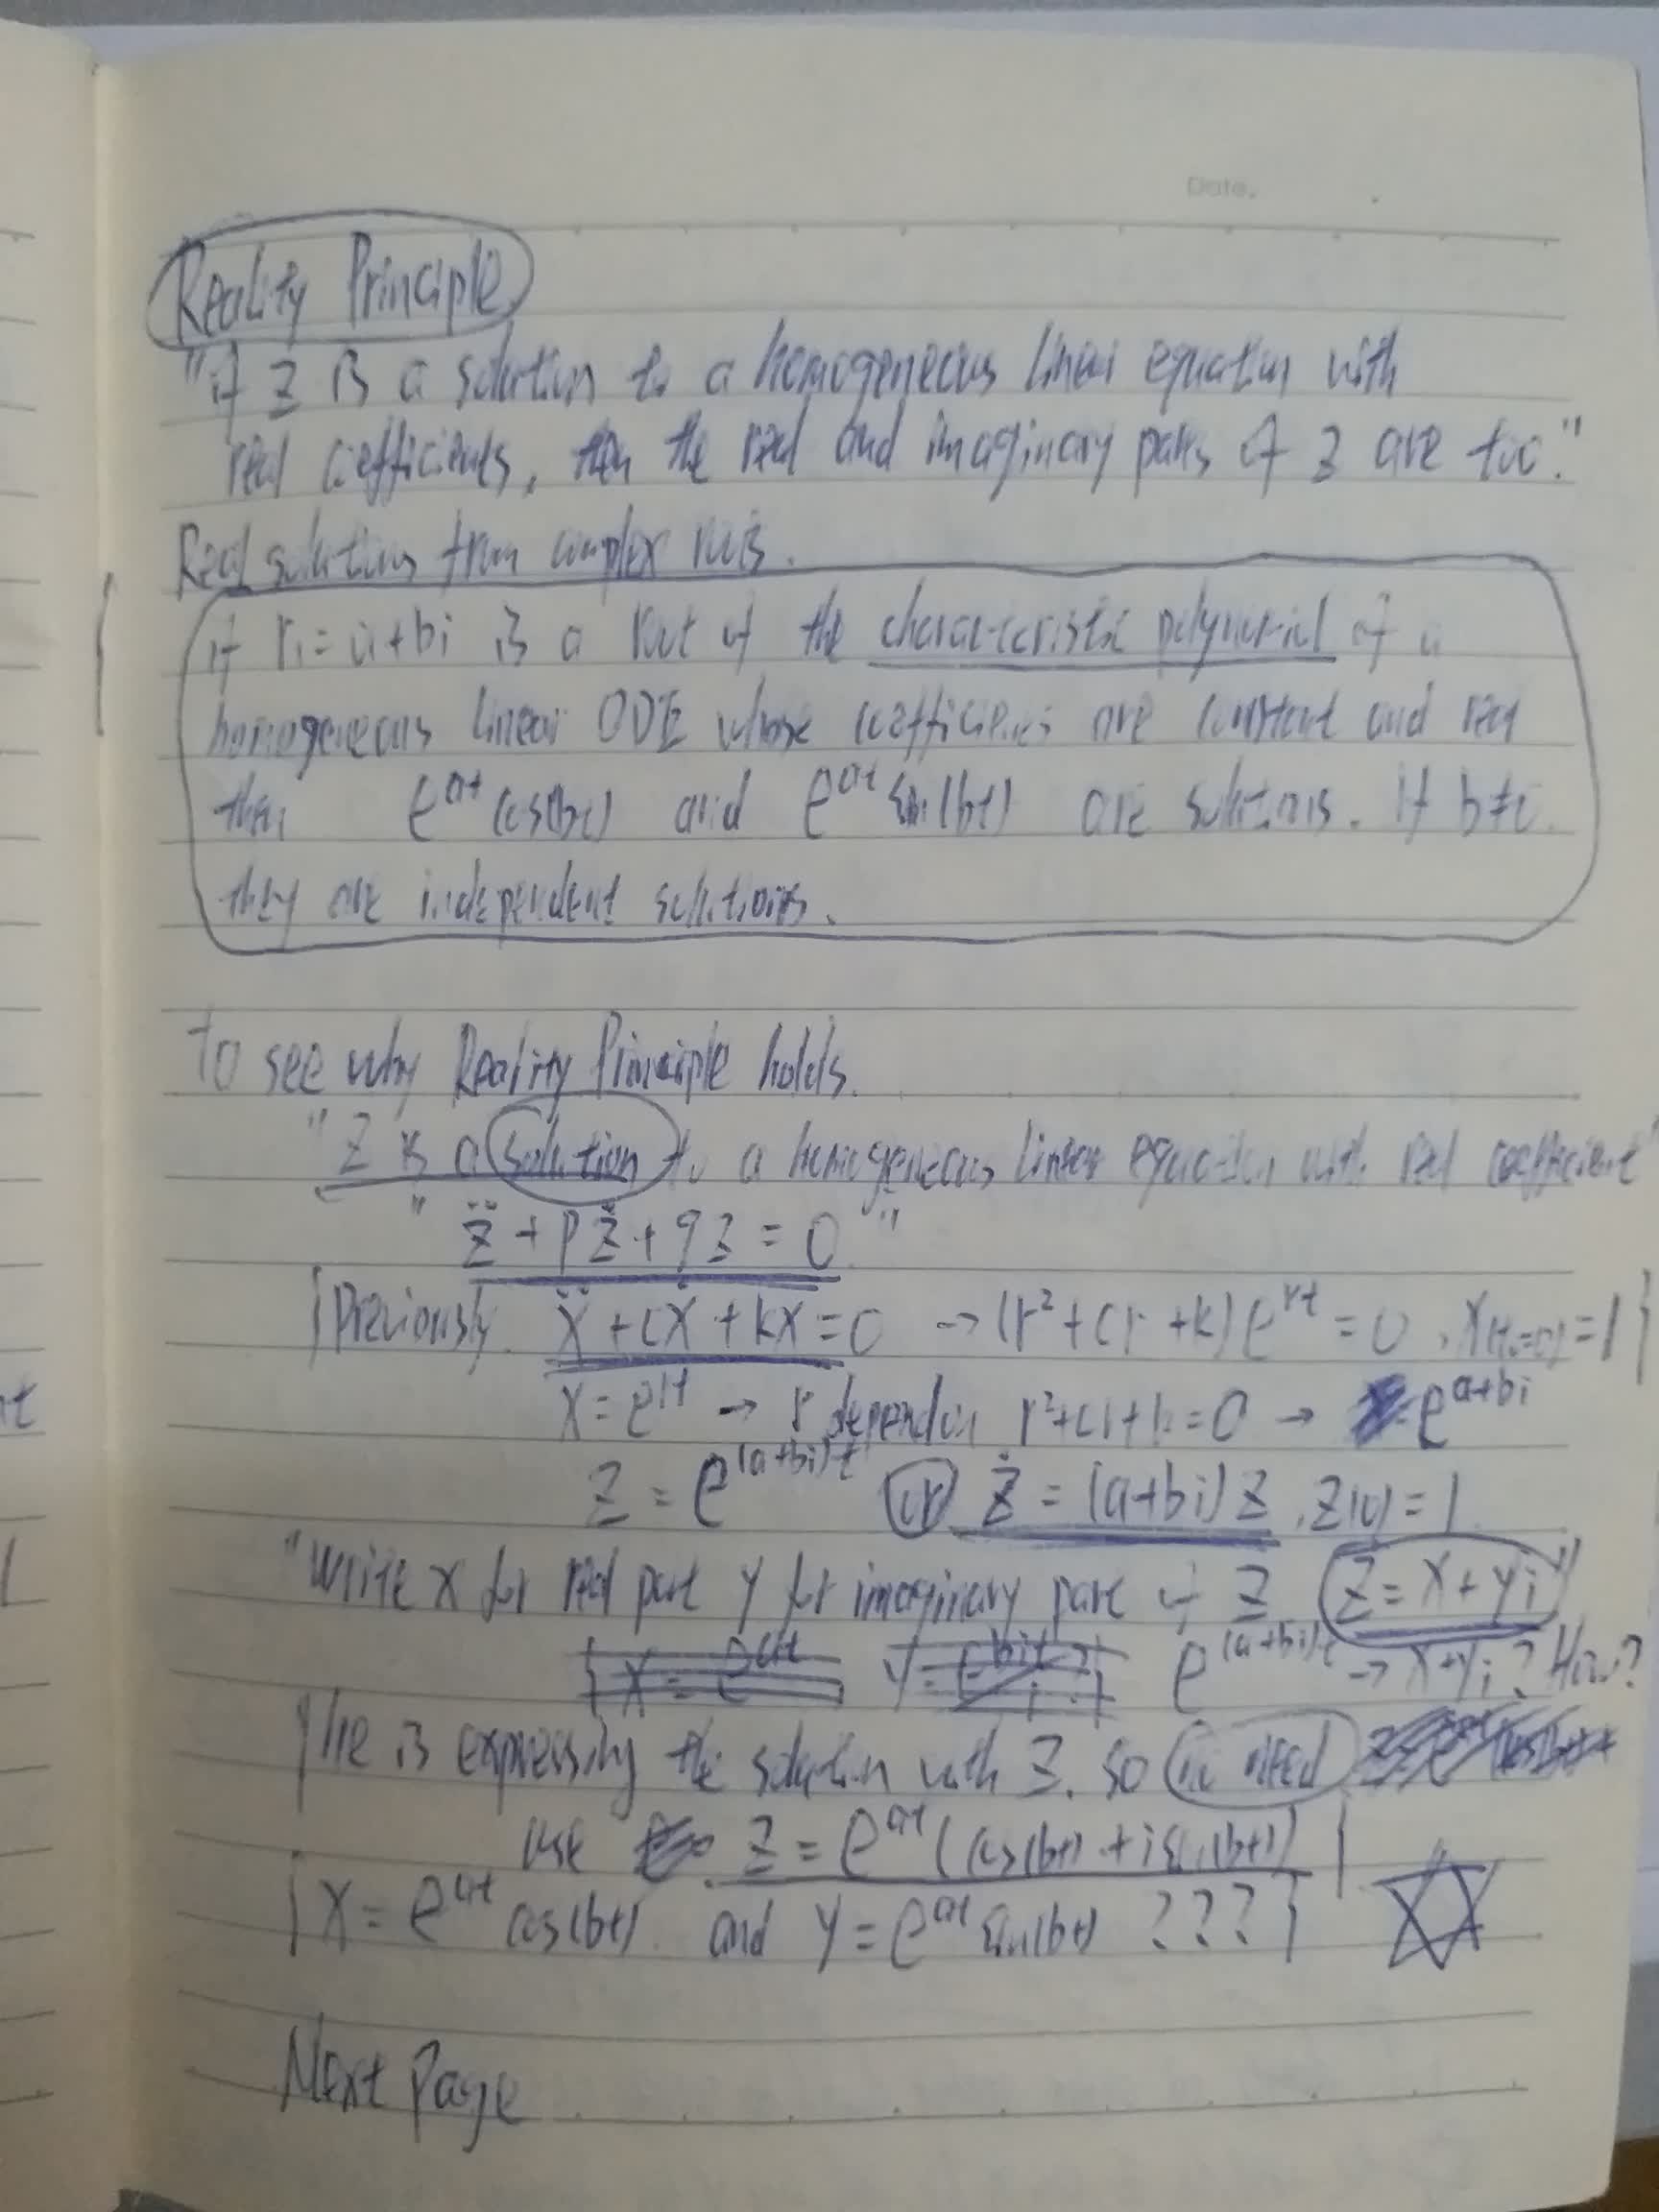 Date.
Reality Principle
"if z is a solution to a homogeneous linear equation with
real coefficients, then the real and imaginary parts of z are too."
Real solutions from complex roots.
if r₁ = a+bi is a root of the characteristic polynomial of a
homogeneous linear ODE whose coefficients are constant and real
then e^{at} cos(bt) and e^{at} sin(bt) are solutions. If b≠0
they are independent solutions.
To see why Reality Principle holds.
"Z is a solution to a homogeneous linear equation with real coefficient"
" z̈ + pż + qz = 0 "
{Previously ẍ + cẋ + kx = 0 → (r² + cr + k) e^{rt} = 0 , x(t=0) = 1}
x = e^{rt} → r depend on r² + cr + k = 0 → e^{a+bi}
z = e^{(a+bi)t} or ż = (a+bi) z , z(0) = 1
"Write x for real part y for imaginary part of z z = x + yi"
{x = e^{at} y = e^{(a+bi)t} → x+yi ? How?
{He is expressing the solution with z. so need
use z = e^{at} (cos(bt) + i sin(bt)) }
{x = e^{at} cos(bt) and y = e^{at} sin(bt) ???}
Next Page